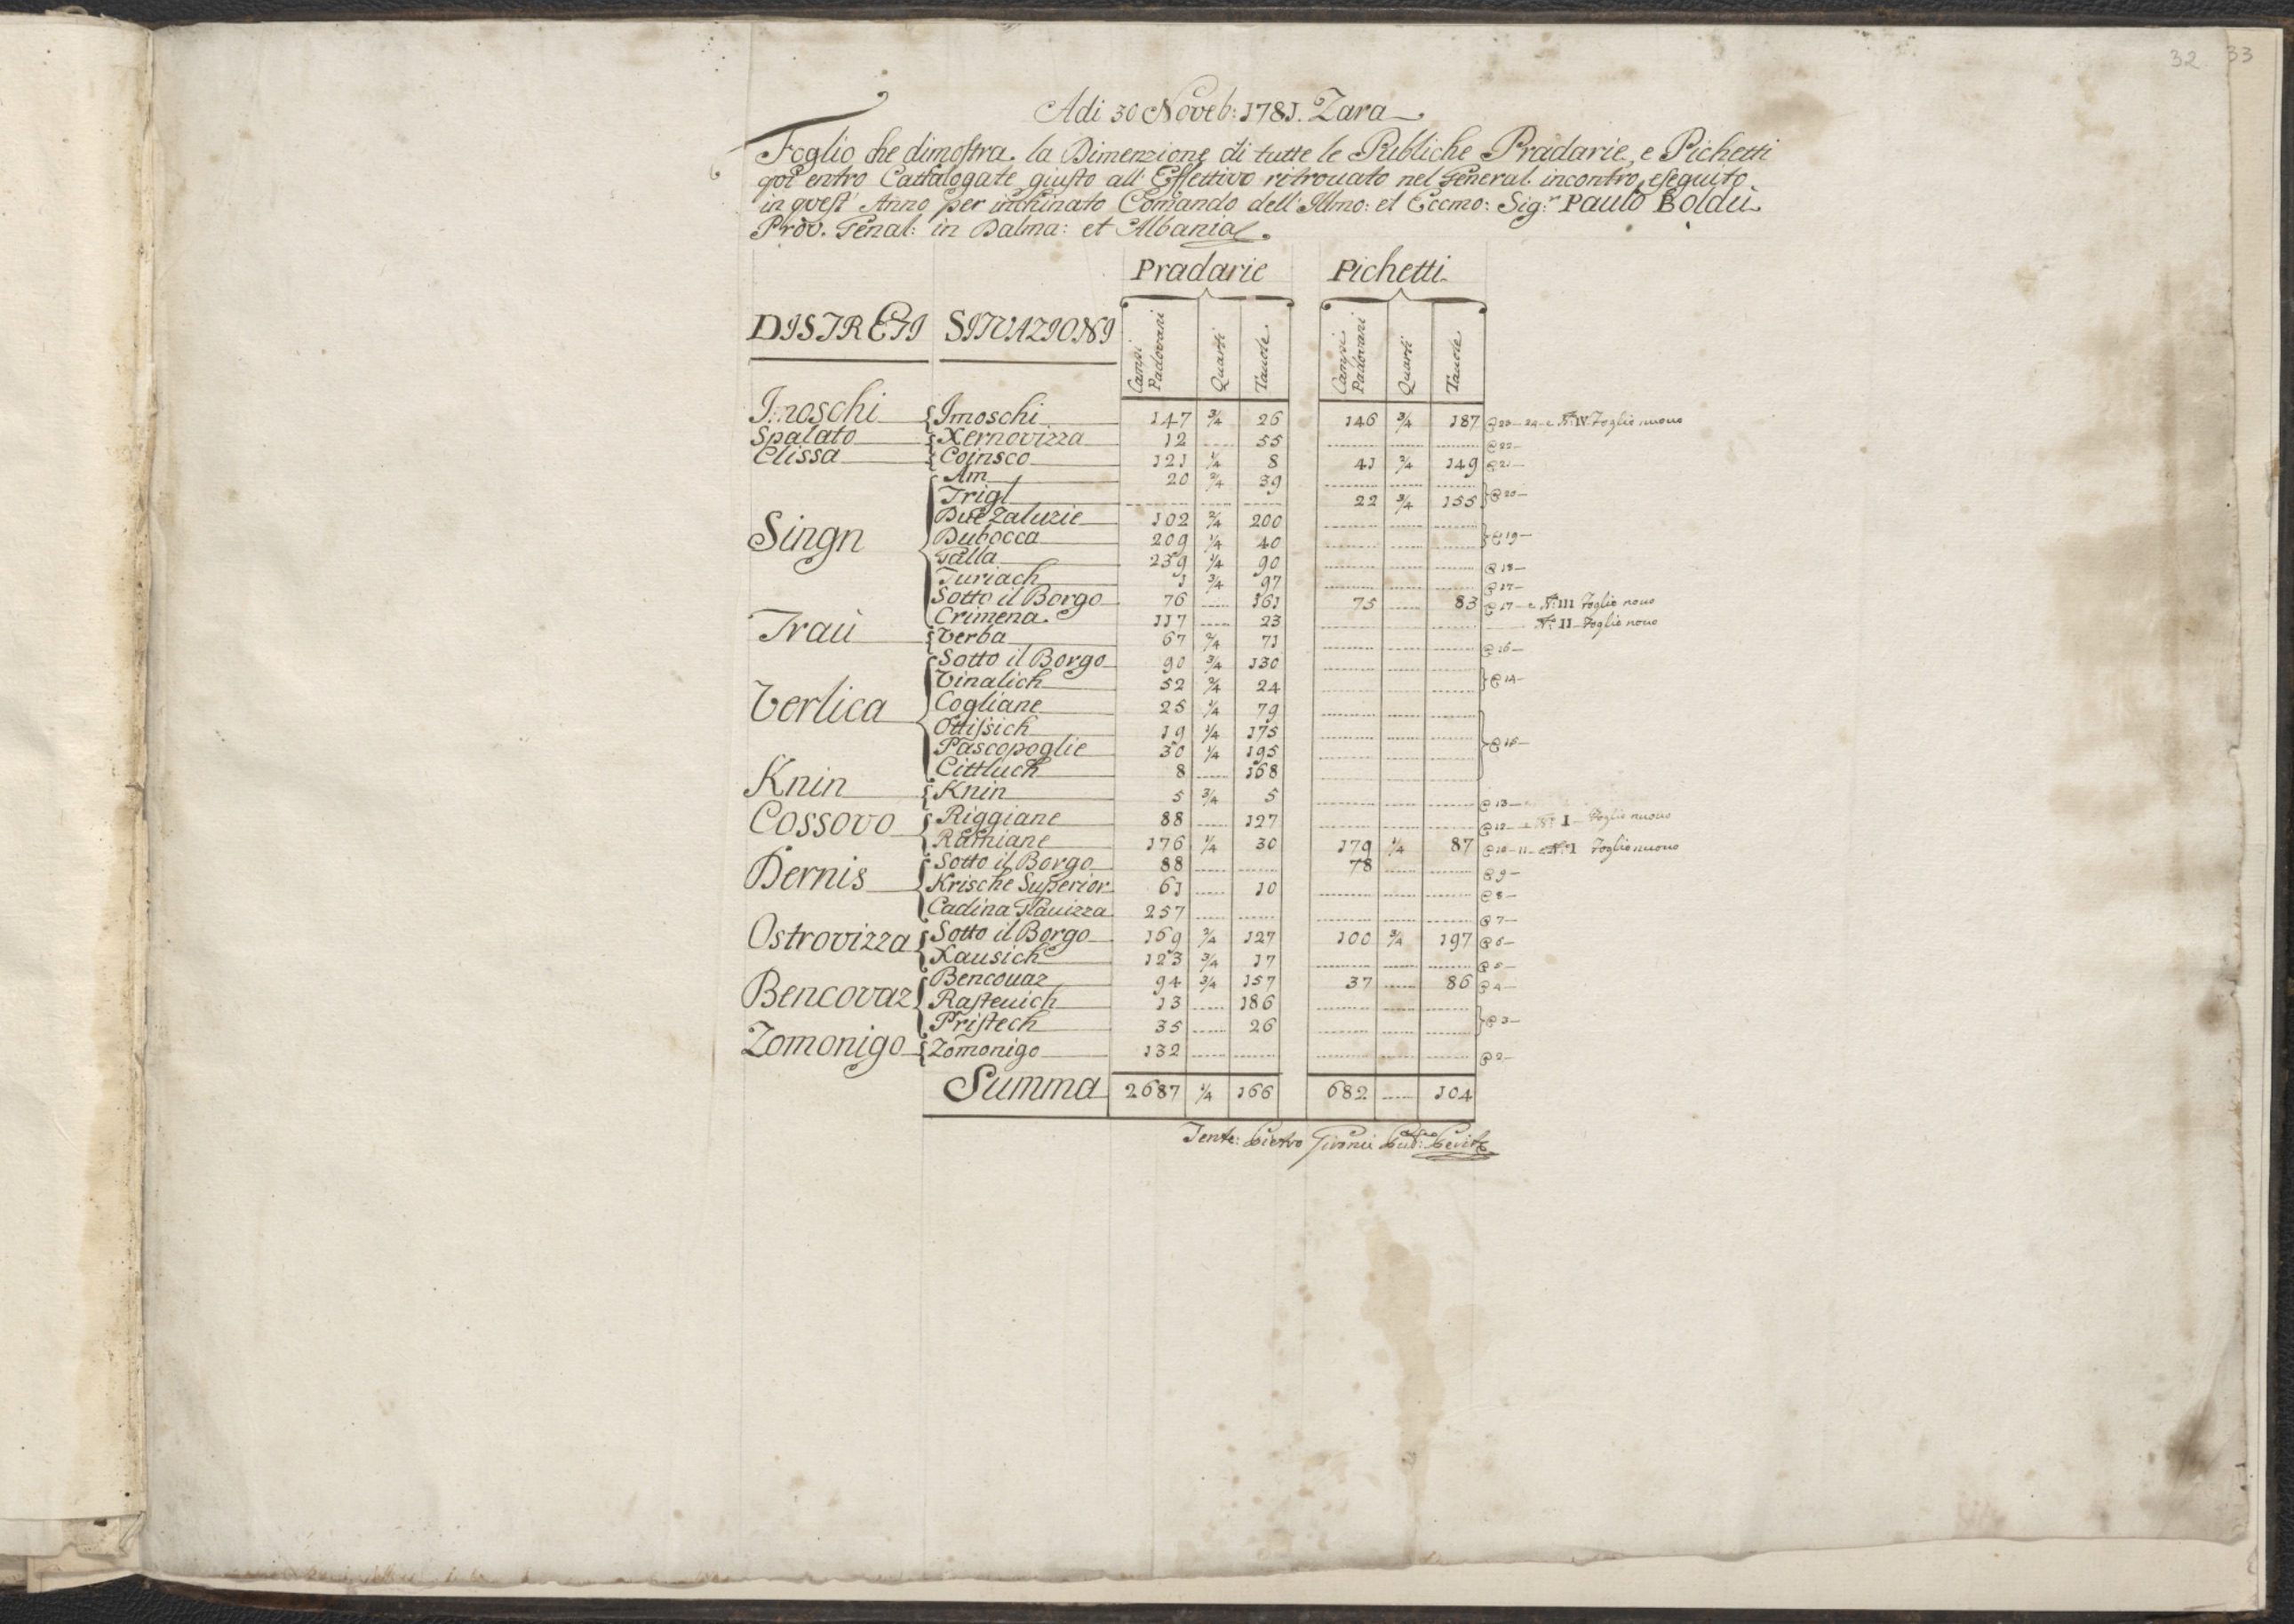 32 33
Adi 30 Noveb: 1781. Zara
Foglio che dimostra la Dimenzione di tutte le Publiche Pradarie, e Pichetti
qui entro Cattalogate giusto all' Effettivo ritrouato nel General incontro esequito
in quest' Anno per inchinato Comando dell' Illmo: et Eccmo: Sig.r Paulo Boldù
Prov. Genal: in Dalma: et Albania
Pradarie Pichetti
DISTRETI SITVAZIONI Campi Padovani Quarti Tauole Campi Padovani Quarti Tauole
Imoschi Imoschi 147 3/4 26 146 3/4 187 @ 23 - 24 - e N. IV Foglio nuouo
Spalato Xernovizza 12 ---- 55 ---- ---- ---- @ 22 -
Clissa Coinsco 121 1/4 8 41 2/4 149 @ 21 -
Singn Am 20 2/4 39 ---- ---- ----
Trigl ---- ---- ---- 22 3/4 155 @ 20 -
Due Zaluzie 102 2/4 200 ---- ---- ----
Dubocca 209 1/4 40 ---- ---- ---- @ 19 -
Talla 239 1/4 90 ---- ---- ---- @ 18 -
Turiach 1 3/4 97 ---- ---- ---- @ 17 -
Sotto il Borgo 76 ---- 161 75 ---- 83 @ 17 - e N. III Foglio nouo
Crimena 117 ---- 23 ---- ---- ---- N. II - Foglio nouo
Traù Verba 67 2/4 71 ---- ---- ---- @ 16 -
Verlica Sotto il Borgo 90 3/4 130 ---- ---- ----
Vinalich 52 2/4 24 ---- ---- ---- @ 14 -
Cogliane 25 1/4 79 ---- ---- ----
Ottissich 19 1/4 175 ---- ---- ----
Pascopoglie 30 1/4 195 ---- ---- ---- @ 15 -
Cittluch 8 ---- 168 ---- ---- ----
Knin Knin 5 3/4 5 ---- ---- ---- @ 13 -
Cossovo Riggiane 88 ---- 127 ---- ---- ---- @ 12 - e N. I - Foglio nuouo
Ramiane 176 1/4 30 179 1/4 87 @ 10 - 11 - e N. I Foglio nuouo
Dernis Sotto il Borgo 88 ---- ---- 78 ---- ---- @ 9 -
Krische Superior 61 ---- 10 ---- ---- ---- @ 8 -
Cadina Glauizza 257 ---- ---- ---- ---- ---- @ 7 -
Ostrovizza Sotto il Borgo 169 2/4 127 100 3/4 197 @ 6 -
Xausich 123 3/4 17 ---- ---- ---- @ 5 -
Bencovaz Bencouaz 94 3/4 157 37 ---- 86 @ 4 -
Rasteuich 13 ---- 186 ---- ---- ----
Pristech 35 ---- 26 ---- ---- ---- @ 3 -
Zomonigo Zomonigo 132 ---- ---- ---- ---- ---- @ 2 -
Summa 2687 1/4 166 682 ---- 104
Tente: Pietro Pub: